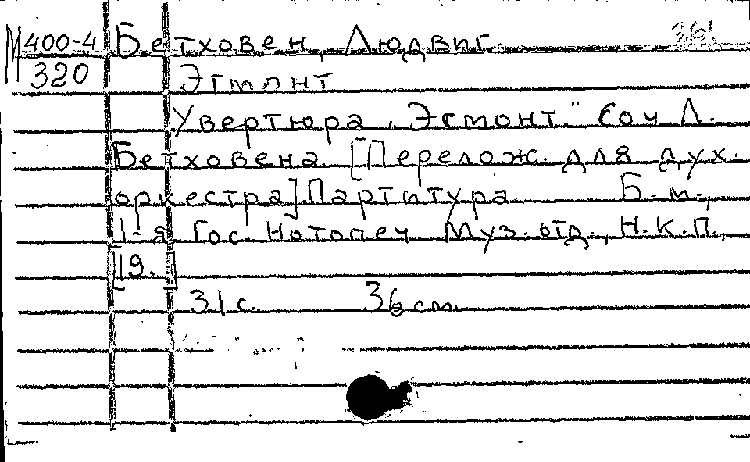 М 400-4 Бетховен, Людвиг
320 Эгмонт
Увертюра „Эгмонт" Соч Л.
Бетховена. [Перелож. для дух.
оркестра] Партитура Б. м.,
1-я Гос. Нотопеч Муз. отд., Н.К.П.,
[19. ]
31 с. 36 см.